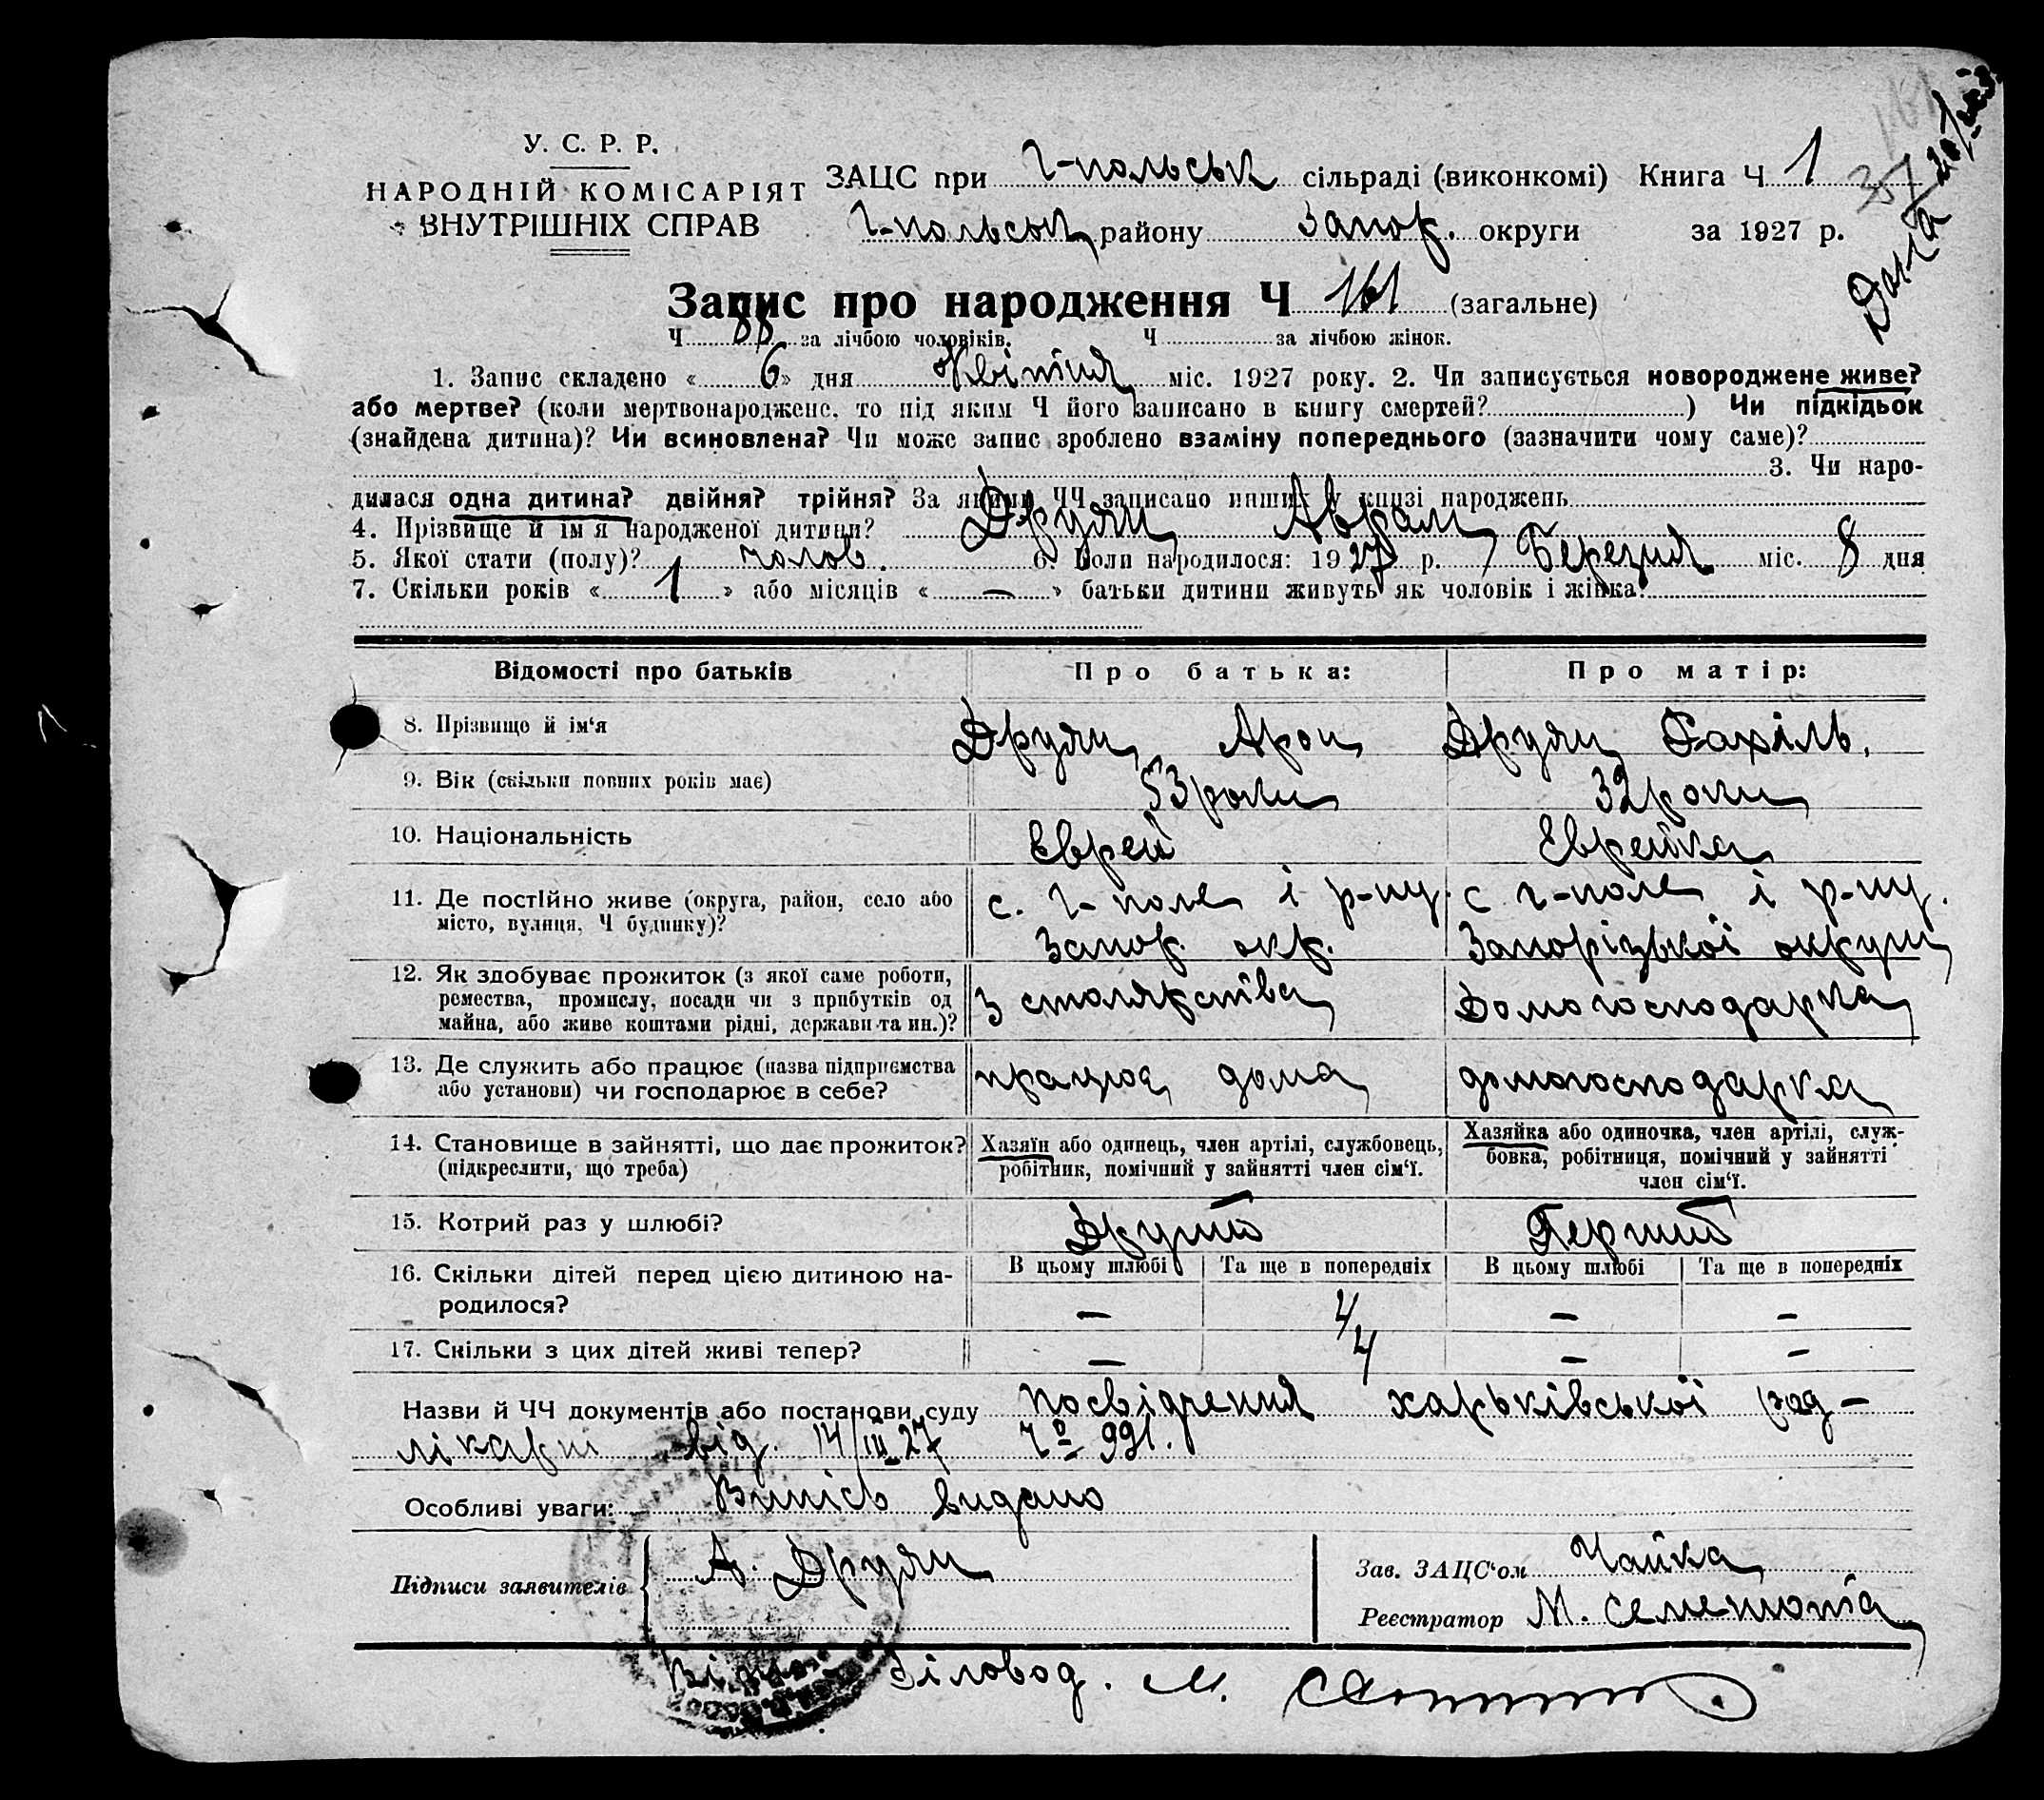 У. С. Р. Р.
НАРОДНІЙ КОМІСАРІЯТ
ВНУТРІШНІХ СПРАВ
ЗАЦС при Г-польськ сільраді (виконкомі) Книга Ч 1
Г-польськ району Запор. округи за 1927 р.
Запис про народження Ч 161 (загальне)
Ч 88 за лічбою чоловіків. Ч за лічбою жінок.
1. Запис складено « 6 » дня Квітня міс. 1927 року. 2. Чи записується новороджене живе?
або мертве? (коли мертвонароджене, то під яким Ч його записано в книгу смертей? ) Чи підкідьок
(знайдена дитина)? Чи всиновлена? Чи може запис зроблено взаміну попереднього (зазначити чому саме)?
3. Чи наро-
дилася одна дитина? двійня? трійня? За якими ЧЧ записано инших у книзі народжень
4. Прізвище й ім'я народженої дитини? Друян Аврам
5. Якої стати (полу)? чолов. 6. Коли народилося: 1927 р. Березня міс. 8 дня
7. Скільки років « 1 » або місяців « — » батьки дитини живуть як чоловік і жінка:
Відомості про батьків Про батька: Про матір:
8. Прізвище й ім'я Друян Арон Друян Рахіль.
9. Вік (скільки повних років має) 53 роки 32 роки
10. Національність Еврей Еврейка
11. Де постійно живе (округа, район, село або місто, вулиця, Ч будинку)? с. Г-поле і р-ну. с Г-поле і р-ну.
Запор. окр. Запорізької округи
12. Як здобуває прожиток (з якої саме роботи, ремества, промислу, посади чи з прибутків од майна, або живе коштами рідні, держави та ин.)? З столярства Домогосподарка
13. Де служить або працює (назва підприємства або установи) чи господарює в себе? працює дома домогосподарка
14. Становище в зайнятті, що дає прожиток? (підкреслити, що треба) Хазяїн або одинець, член артілі, службовець, робітник, помічний у зайнятті член сім'ї. Хазяйка або одиночка, член артілі, служ-
бовка, робітниця, помічний у зайнятті член сім'ї.
15. Котрий раз у шлюбі? Другий Перший
16. Скільки дітей перед цією дитиною на-
родилося? В цьому шлюбі Та ще в попередніх В цьому шлюбі Та ще в попередніх
— 4 — —
17. Скільки з цих дітей живі тепер? — 4 — —
Назви й ЧЧ документів або постанови суду посвідчення харьківської рад-
лікарні від. 14/III 27 Ч° 991.
Особливі уваги: Випісь видано
Підписи заявителів А. Друян
Зав. ЗАЦС'ом Чайка
Реєстратор М.